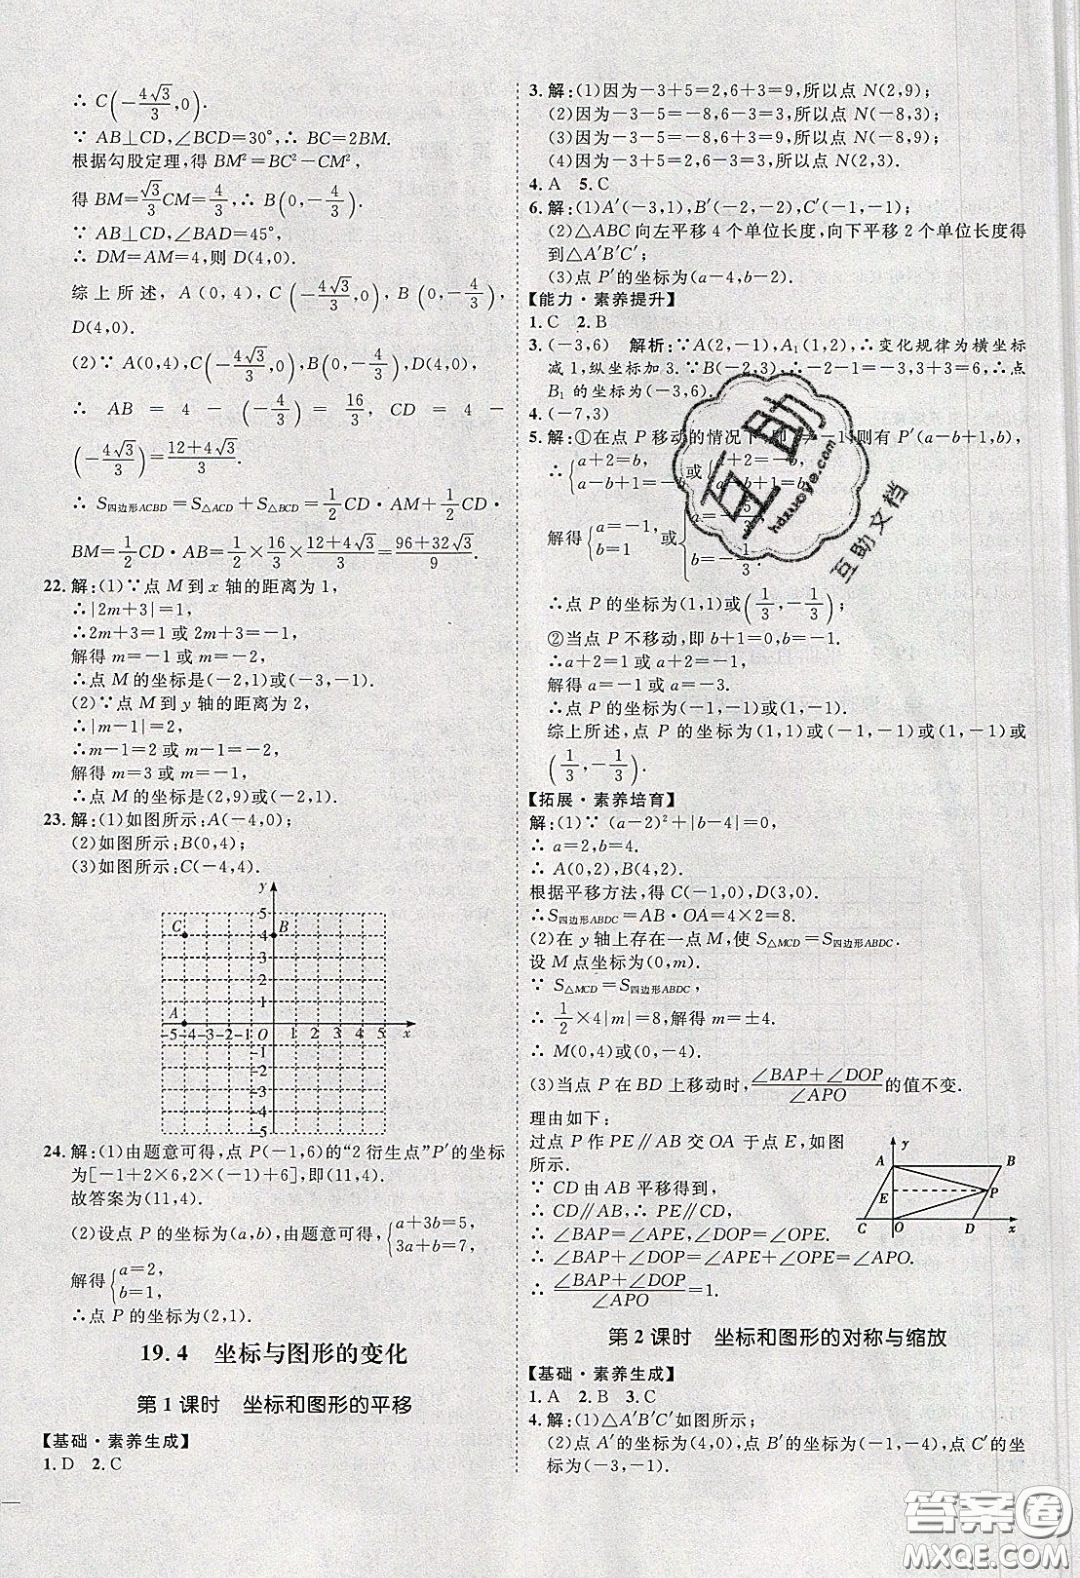 ∴ C(-4√3/3,0).
∵ AB⊥CD,∠BCD=30°,∴ BC=2BM.
根据勾股定理,得 BM²=BC²-CM²,
得 BM=√3/3CM=4/3,∴ B(0,-4/3).
∵ AB⊥CD,∠BAD=45°,
∴ DM=AM=4,则 D(4,0).
综上所述, A(0,4), C(-4√3/3,0), B(0,-4/3),
D(4,0).
(2)∵ A(0,4),C(-4√3/3,0),B(0,-4/3),D(4,0),
∴ AB = 4 - (-4/3) = 16/3, CD = 4 -
(-4√3/3)=12+4√3/3.
∴ S四边形ACBD=S△ACD+S△BCD=1/2CD·AM+1/2CD·
BM=1/2CD·AB=1/2×16/3×12+4√3/3=96+32√3/9.
22.解:(1)∵点 M 到 x 轴的距离为 1,
∴|2m+3|=1,
∴2m+3=1 或 2m+3=-1,
解得 m=-1 或 m=-2,
∴点 M 的坐标是(-2,1)或(-3,-1).
(2)∵点 M 到 y 轴的距离为 2,
∴|m-1|=2,
∴m-1=2 或 m-1=-2,
解得 m=3 或 m=-1,
∴点 M 的坐标是(2,9)或(-2,1).
23.解:(1)如图所示:A(-4,0);
(2)如图所示:B(0,4);
(3)如图所示:C(-4,4).
y
5
C 4 B
3
2
1
A
-5-4-3-2-1 O 1 2 3 4 5 x
-1
-2
-3
-4
-5
24.解:(1)由题意可得,点 P(-1,6)的“2 衍生点”P′的坐标
为[-1+2×6,2×(-1)+6],即(11,4).
故答案为(11,4).
(2)设点 P 的坐标为(a,b),由题意可得,{a+3b=5, 3a+b=7,
解得{a=2, b=1,
∴点 P 的坐标为(2,1).
19.4 坐标与图形的变化
第 1 课时 坐标和图形的平移
【基础·素养生成】
1.D 2.C
3.解:(1)因为-3+5=2,6+3=9,所以点 N(2,9);
(2)因为-3-5=-8,6-3=3,所以点 N(-8,3);
(3)因为-3-5=-8,6+3=9,所以点 N(-8,9);
(4)因为-3+5=2,6-3=3,所以点 N(2,3).
4.A 5.C
6.解:(1)A′(-3,1),B′(-2,-2),C′(-1,-1);
(2)△ABC 向左平移 4 个单位长度,向下平移 2 个单位长度得
到△A′B′C′;
(3)点 P′的坐标为(a-4,b-2).
【能力·素养提升】
1.C 2.B
3.(-3,6) 解析:∵A(2,-1),A₁(1,2),∴变化规律为横坐标
减 1,纵坐标加 3.∵B(-2,3),∴-2-1=-3,3+3=6,∴点
B₁ 的坐标为(-3,6).
4.(-7,3)
5.解:①在点 P 移动的情况下,则 -1,则有 P′(a-b+1,b),
∴{a+2=b, a-b+1=-b 或{a+2=-b, a-b+1=b
解得{a=-1, b=1 或{a=-5/3, b=-1/3.
∴点 P 的坐标为(1,1)或(1/3,-1/3);
②当点 P 不移动,即 b+1=0,b=-1.
∴a+2=1 或 a+2=-1.
解得 a=-1 或 a=-3.
∴点 P 的坐标为(-1,-1)或(1,-1).
综上所述,点 P 的坐标为(1,1)或(-1,-1)或(1,-1)或
(1/3,-1/3).
【拓展·素养培育】
解:(1)∵ (a-2)²+|b-4|=0,
∴ a=2,b=4.
∴ A(0,2),B(4,2).
根据平移方法,得 C(-1,0),D(3,0).
∴S四边形ABDC=AB·OA=4×2=8.
(2)在 y 轴上存在一点 M,使 S△MCD=S四边形ABDC.
设 M 点坐标为(0,m).
∵ S△MCD=S四边形ABDC,
∴ 1/2×4|m|=8,解得 m=±4.
∴ M(0,4)或(0,-4).
(3)当点 P 在 BD 上移动时,∠BAP+∠DOP/∠APO的值不变.
理由如下:
过点 P 作 PE∥AB 交 OA 于点 E,如图
所示.
∵ CD 由 AB 平移得到,
∴ CD∥AB,∴ PE∥CD,
∴ ∠BAP=∠APE,∠DOP=∠OPE.
∴ ∠BAP+∠DOP=∠APE+∠OPE=∠APO,
∴ ∠BAP+∠DOP/∠APO=1.
y
A B
E P
C O D x
第 2 课时 坐标和图形的对称与缩放
【基础·素养生成】
1.A 2.B 3.C
4.解:(1)△A′B′C′如图所示;
(2)点 A′的坐标为(4,0),点 B′的坐标为(-1,-4),点 C′的坐
标为(-3,-1).
互助
hdzuoye.com
互助文档
答案圈
MXQE.COM